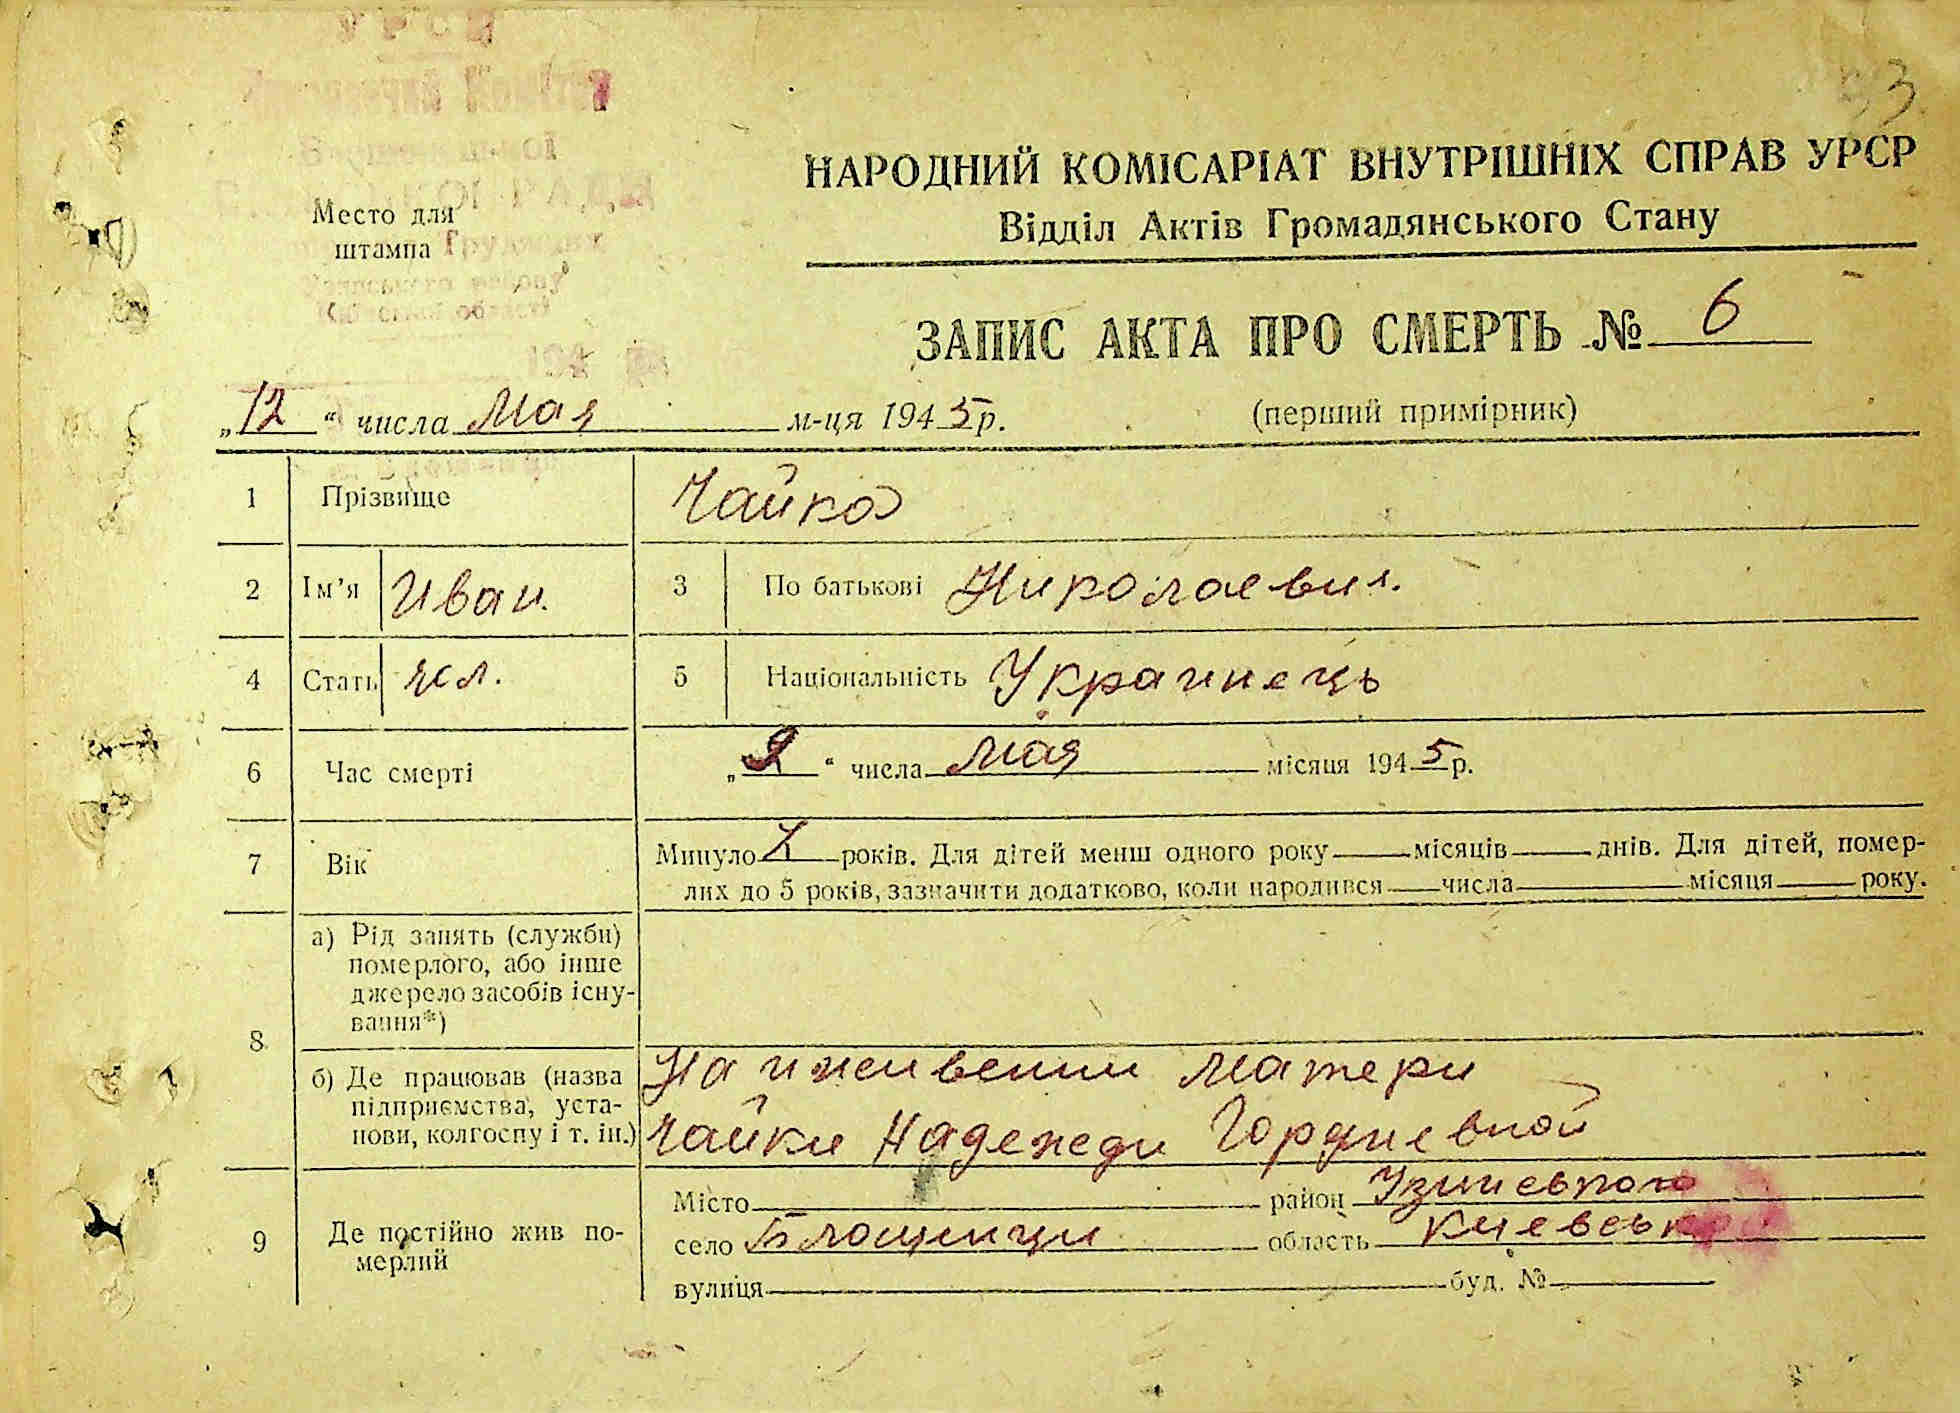 УРСР
33
НАРОДНИЙ КОМІСАРІАТ ВНУТРІШНІХ СПРАВ УРСР
Відділ Актів Громадянського Стану
Место для
штампа
району
Київської області
ЗАПИС АКТА ПРО СМЕРТЬ № 6
„12“ числа Мая м-ця 1945р. (перший примірник)
1 Прізвище Чайка
2 Ім'я Иван. 3 По батькові Николаевич.
4 Стать 5 Національність Украинець
6 Час смерті „9“ числа Мая місяця 1945р.
7 Вік Минуло років. Для дітей менш одного року місяців днів. Для дітей, помер-
лих до 5 років, зазначити додатково, коли народився числа місяця року.
8 а) Рід занять (служби)
померлого, або інше
джерело засобів існу-
вання*)
б) Де працював (назва На ижевении матери
підприємства, уста-
нови, колгоспу і т. ін.) Чайки Надежди Гордиевной
9 Де постійно жив по-
мерлий
Місто район Узинсвкого
село Блощинци область Киевська
вулиця буд. №